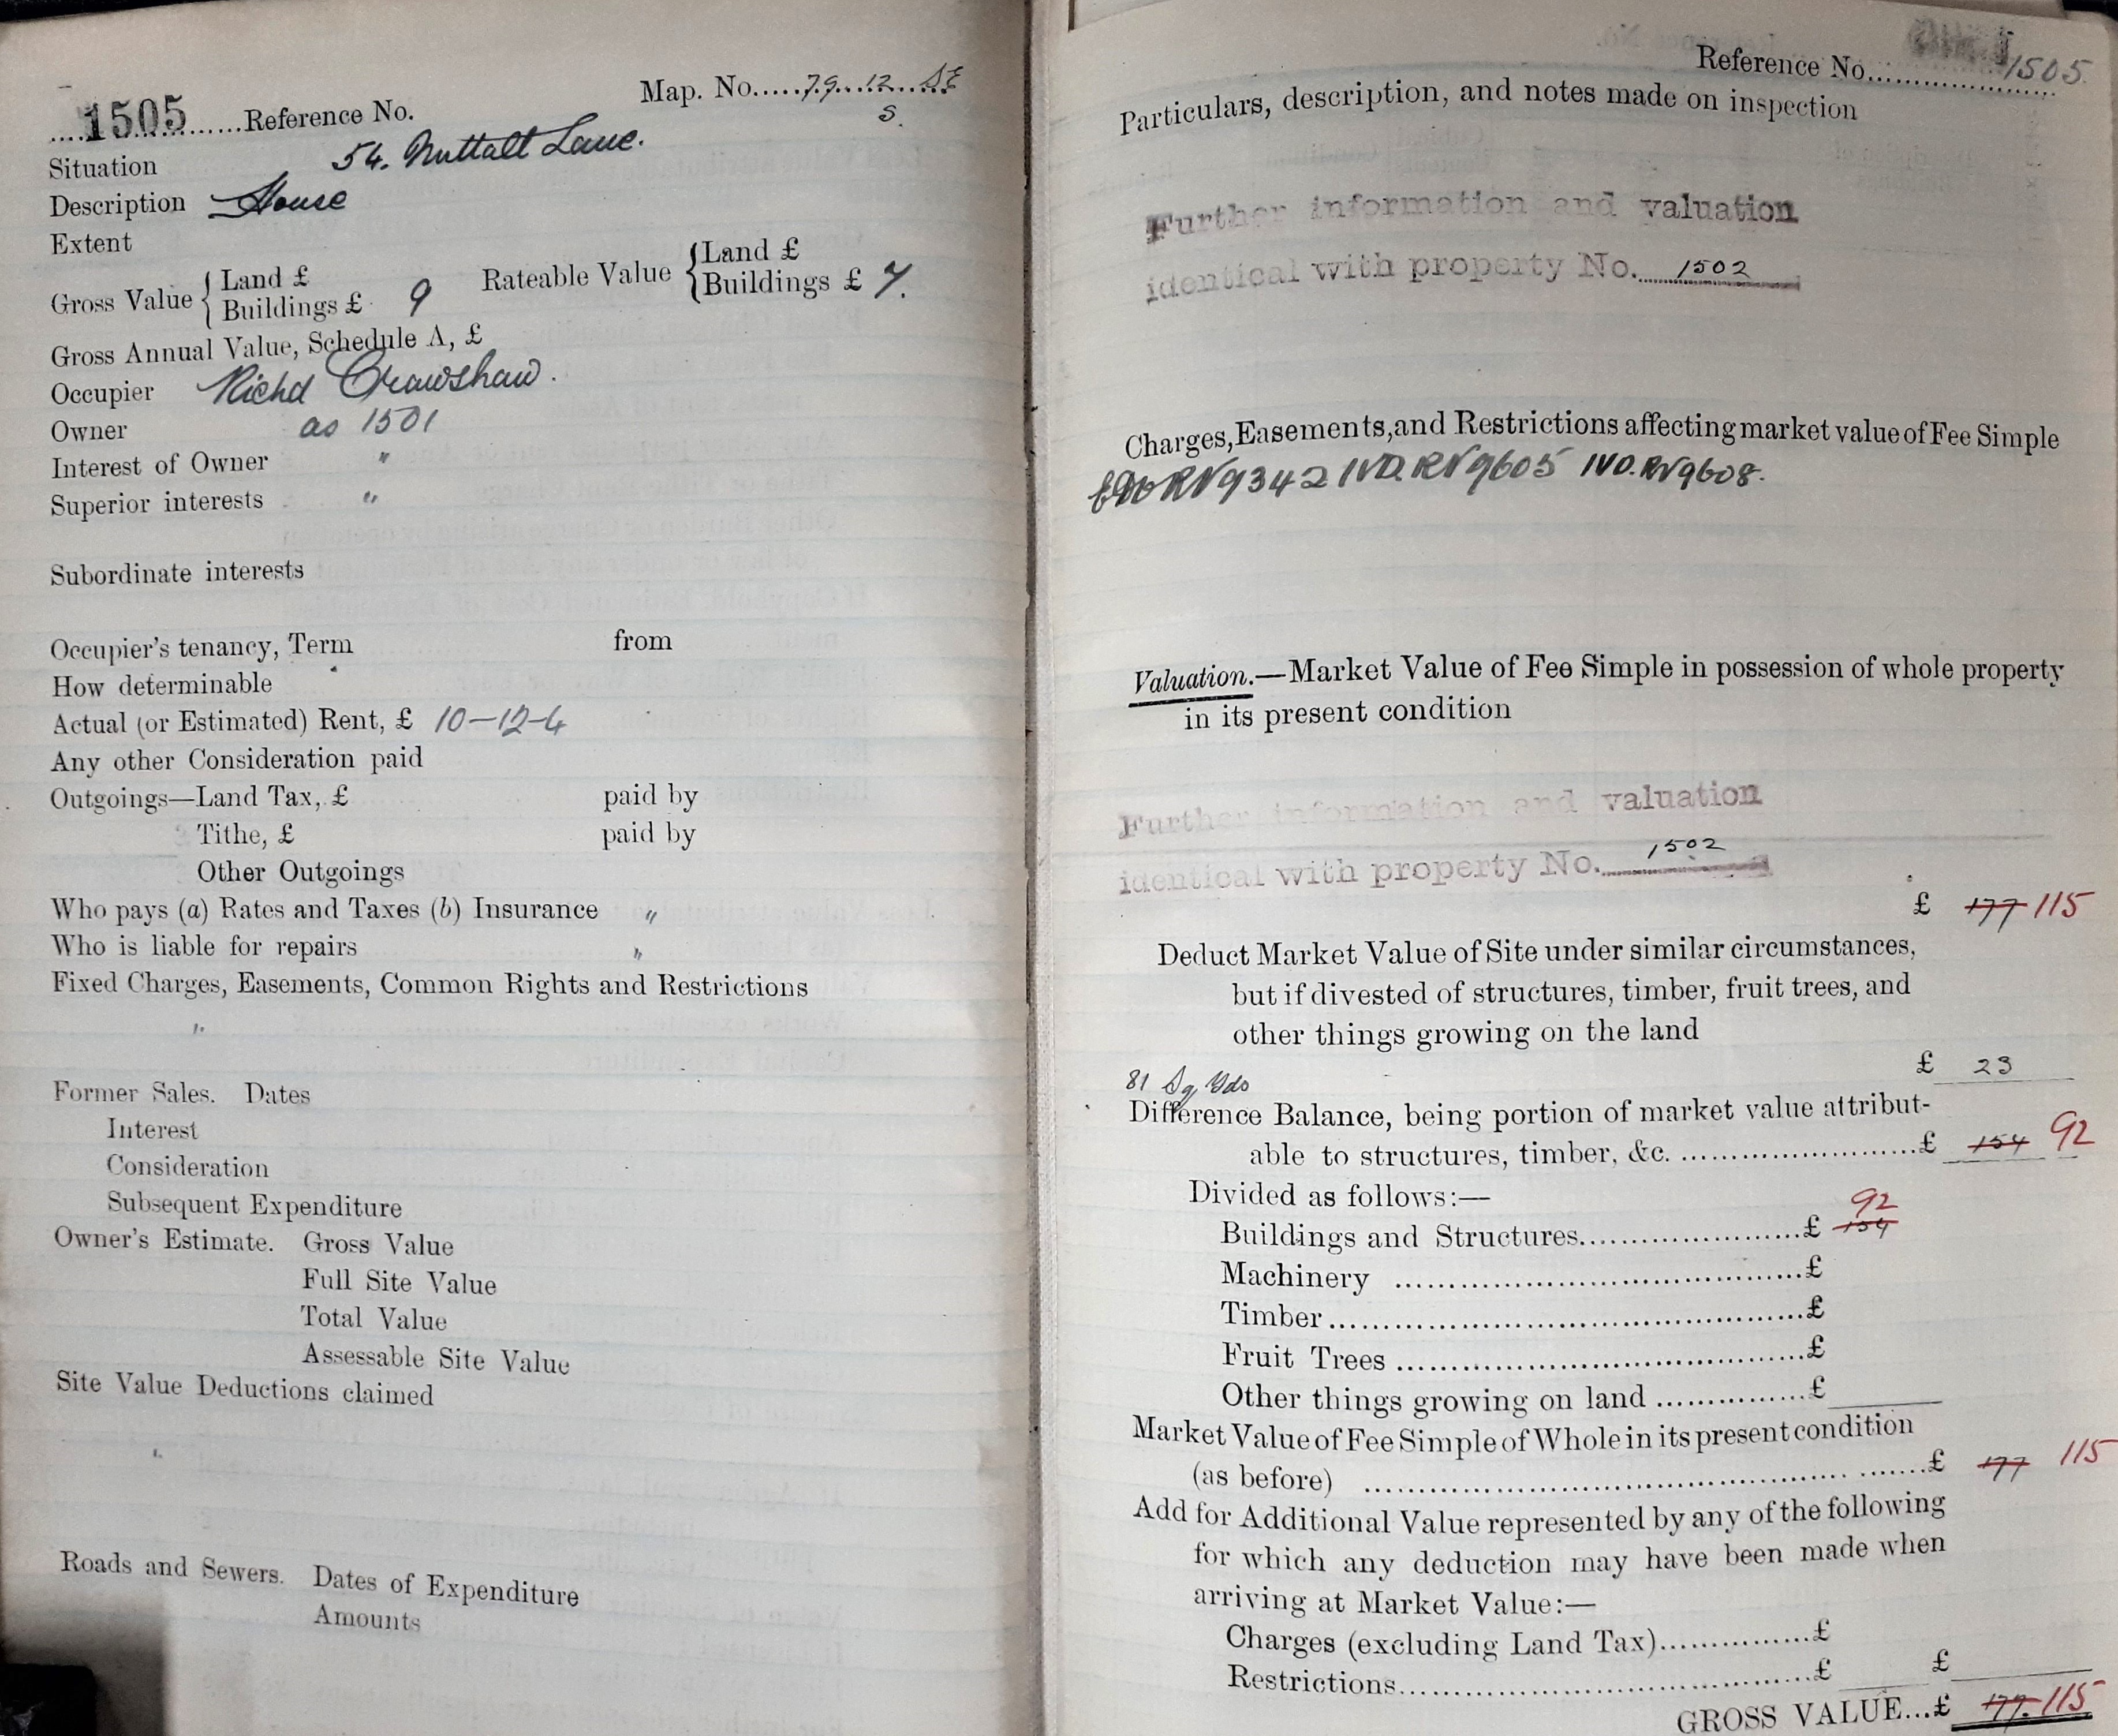 1505 Reference No. Map. No. 79. 12. SE
S.
Situation 54. Nuttall Lane.
Description House
Extent
Gross Value { Land £
Buildings £ 9
Rateable Value { Land £
Buildings £ 7.
Gross Annual Value, Schedule A, £
Occupier Richd Crawshaw.
Owner as 1501
Interest of Owner "
Superior interests "
Subordinate interests
Occupier's tenancy, Term from
How determinable
Actual (or Estimated) Rent, £ 10-12-4
Any other Consideration paid
Outgoings—Land Tax, £ paid by
Tithe, £ paid by
Other Outgoings
Who pays (a) Rates and Taxes (b) Insurance "
Who is liable for repairs "
Fixed Charges, Easements, Common Rights and Restrictions
"
Former Sales. Dates
Interest
Consideration
Subsequent Expenditure
Owner's Estimate. Gross Value
Full Site Value
Total Value
Assessable Site Value
Site Value Deductions claimed
Roads and Sewers. Dates of Expenditure
Amounts
Reference No. 1505.
Particulars, description, and notes made on inspection
Further information and valuation
identical with property No. 1502
Charges, Easements, and Restrictions affecting market value of Fee Simple
RV9342 IVD. RV9605 IVD. RV9608.
Valuation.—Market Value of Fee Simple in possession of whole property
in its present condition
Further information and valuation
identical with property No. 1502
£ 177 115
Deduct Market Value of Site under similar circumstances,
but if divested of structures, timber, fruit trees, and
other things growing on the land
£ 23
81 Sq Yds
Difference Balance, being portion of market value attribut-
able to structures, timber, &c. £ 154 92
Divided as follows:—
92
Buildings and Structures £ 154
Machinery £
Timber £
Fruit Trees £
Other things growing on land £
Market Value of Fee Simple of Whole in its present condition
(as before) £ 177 115
Add for Additional Value represented by any of the following
for which any deduction may have been made when
arriving at Market Value:—
Charges (excluding Land Tax) £
Restrictions £ £
GROSS VALUE...£ 177. 115